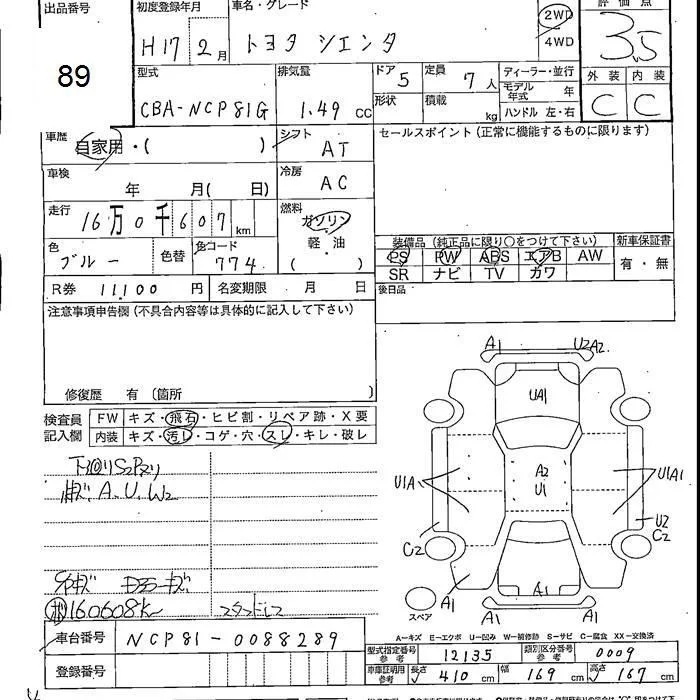 出品番号 初度登録年月 車名・グレード 評価点
89 H17 2月 トヨタ シエンタ 2WD 4WD 3.5
型式 排気量 ドア 5 定員 7人 ディーラー・並行 外装 内装
CBA-NCP81G 1.49 CC 形状 積載 kg モデル年式 年 ハンドル 左・右 C C
車歴 自家用・( ) シフト AT セールスポイント(正常に機能するものに限ります)
車検 年 月( 日) 冷房 AC
走行 16万0千607 km 燃料 ガソリン 軽・油 ( )
色 ブルー 色替 色コード 774
装備品(純正品に限り○をつけて下さい) 新車保証書
PS PW ABS エアB AW 有・無
SR ナビ TV カワ
R券 11,100 円 名変期限 月 日 後日品
注意事項申告欄(不具合内容等は具体的に記入して下さい)
修復歴 有 (箇所 )
検査員記入欄 FW キズ・飛石・ヒビ割・リペア跡・X要
内装 キズ・汚レ・コゲ・穴・スレ・キレ・破レ
A.U.W2
160608K
A1 U2A2
UA1
A2
U1
U1A U1A1
U2
C2 C2
A1 A1 A1
スペア
A-キズ E-エクボ U-凹み W-補修跡 S-サビ C-腐食 XX-交換済
車台番号 NCP81-0088289
型式指定番号 参考 12135 類別区分番号 参考 0009
登録番号
車庫証明用 参考 長さ 410 cm 幅 169 cm 高さ 167 cm